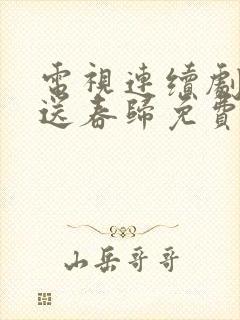 電視連續劇
送春歸免費
山岳哥哥